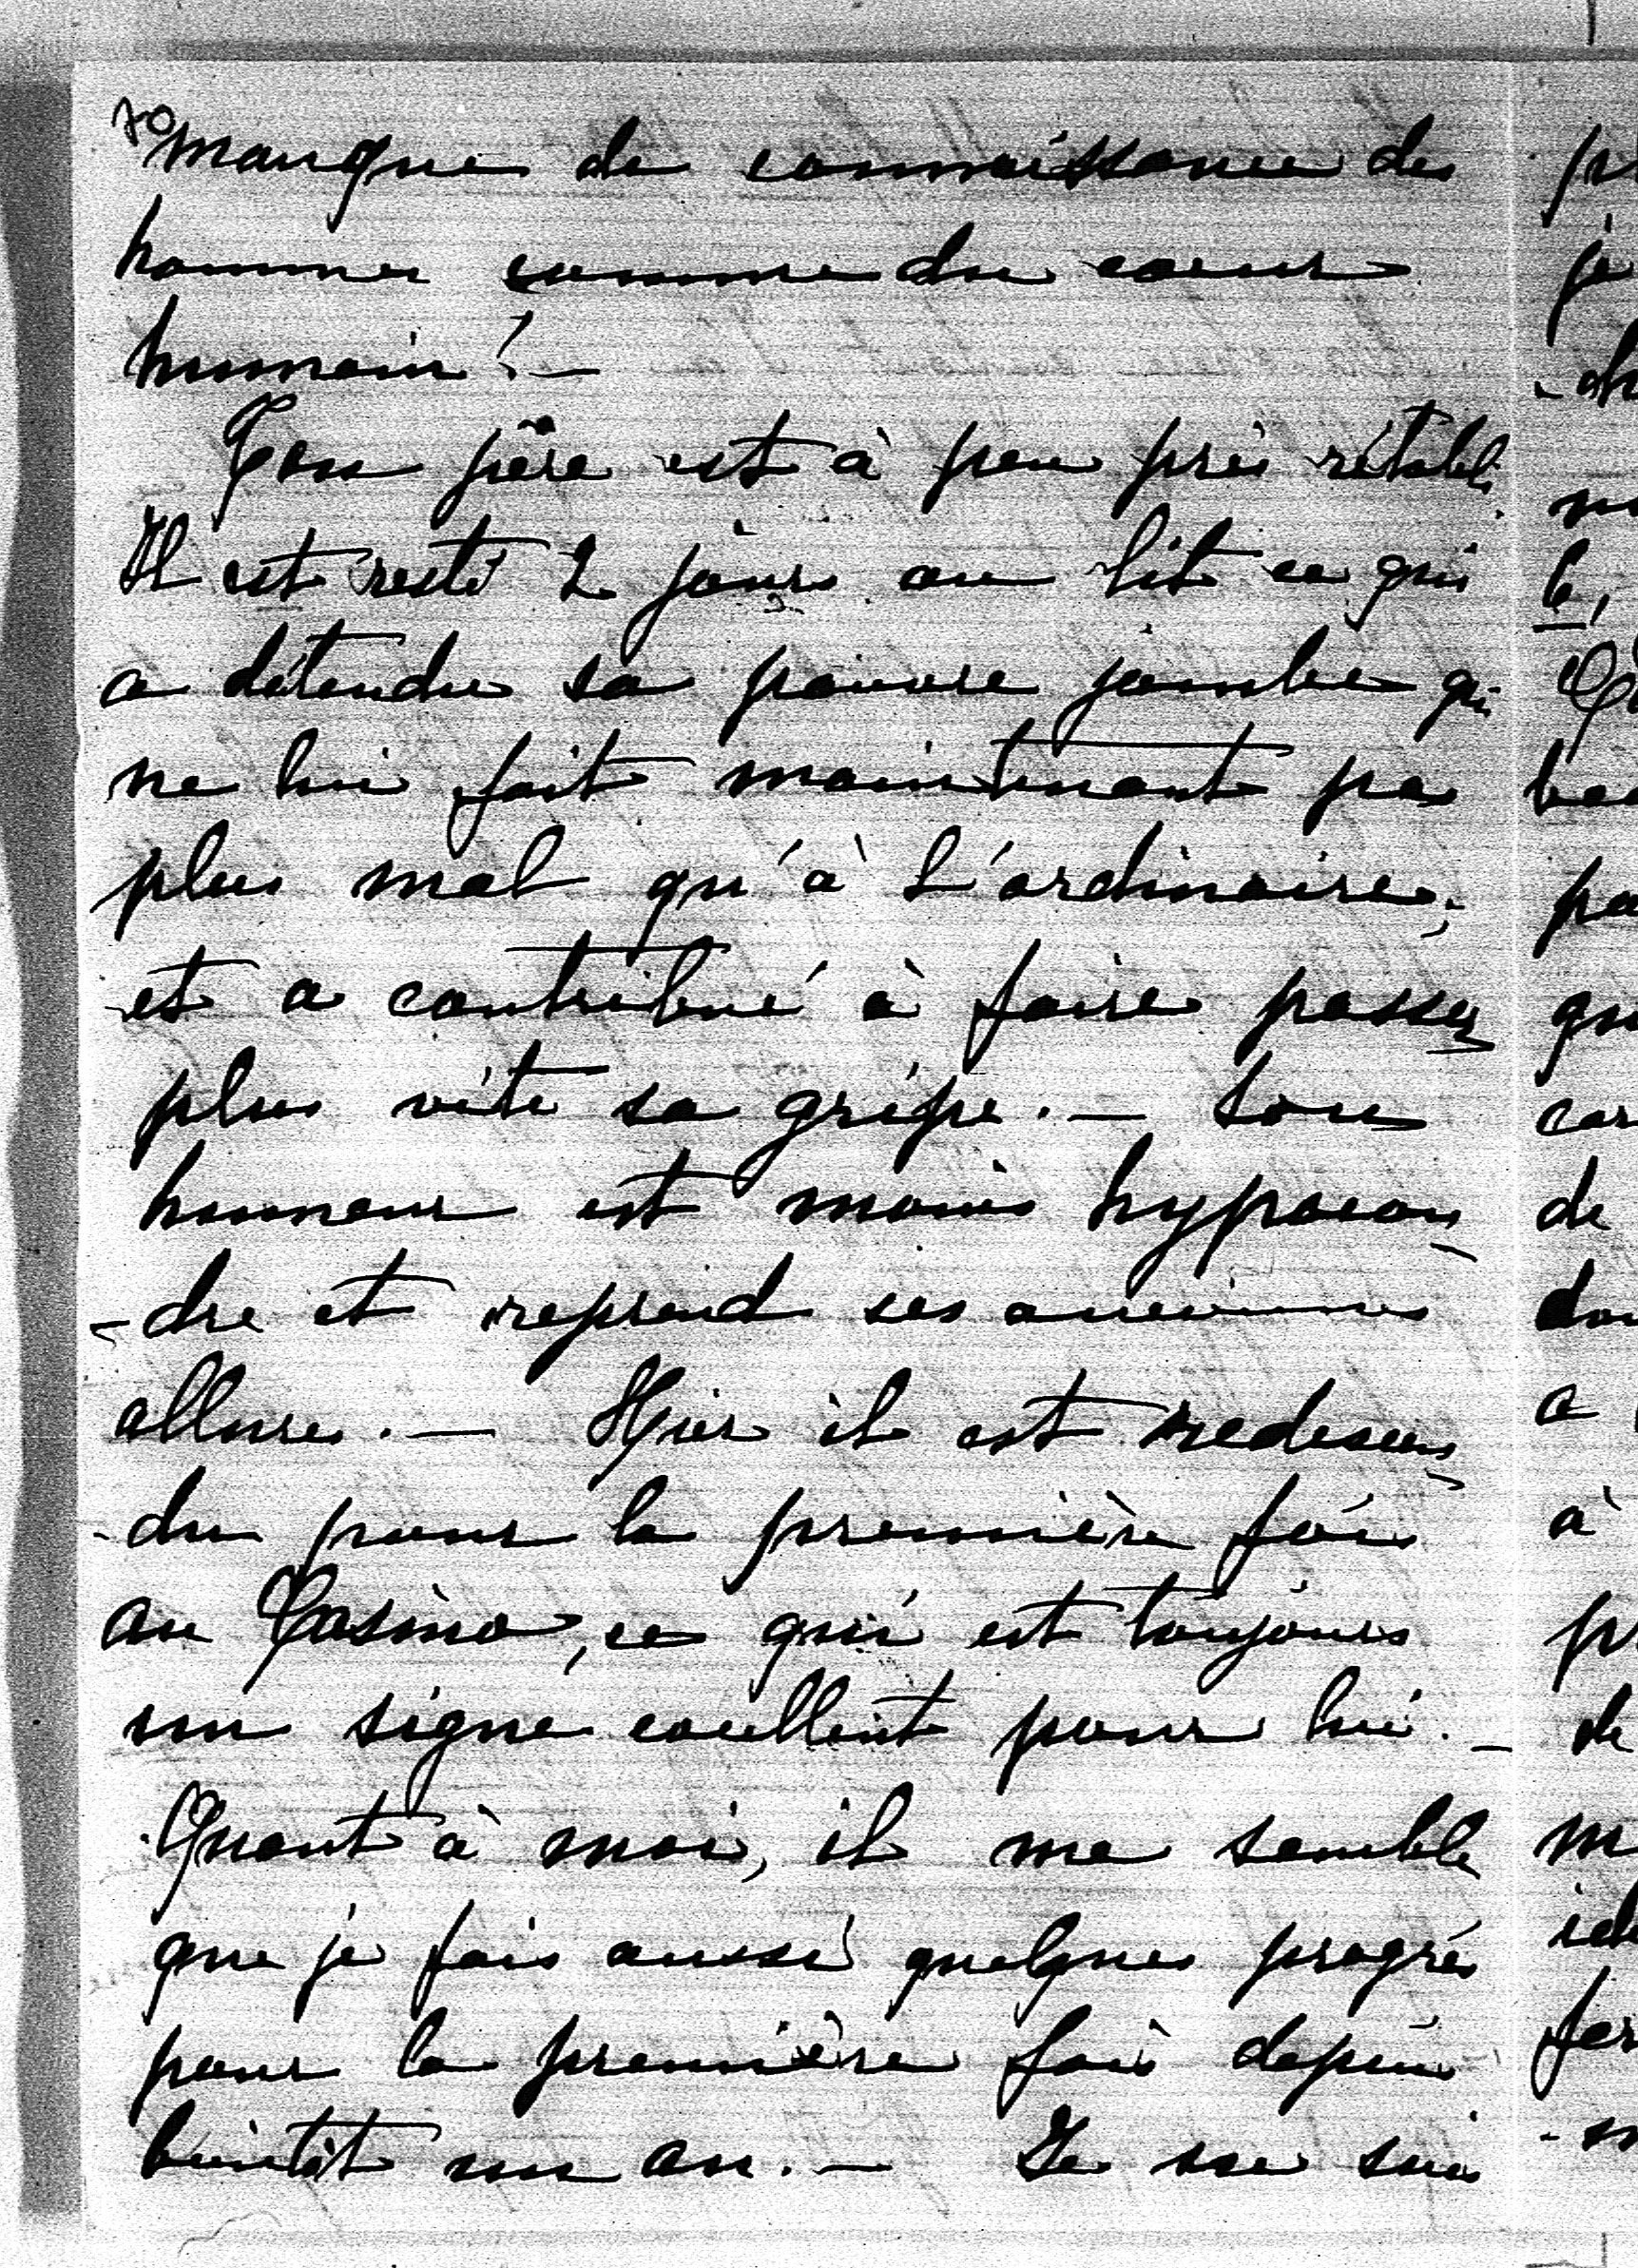 70
manque de connaissance des
hommes comme du coeur
humain! —
Ton père est à peu près rétabli.
Il est resté 2 jours au lit ce qui
a détendu sa pauvre jambe qui
ne lui fait maintenant pas
plus mal qu'à l'ordinaire,
et a contribué à faire passer
plus vite sa grippe. — Son
humeur est moins hypocon-
-dre et reprend ses anciennes
allures. — Hier il est redescen-
-du pour la première fois
au Casino, ce qui est toujours
un signe excellent pour lui. —
Quant à moi, il me semble
que je fais aussi quelques progrès
pour la première fois depuis
bientôt un an. — Je me suis